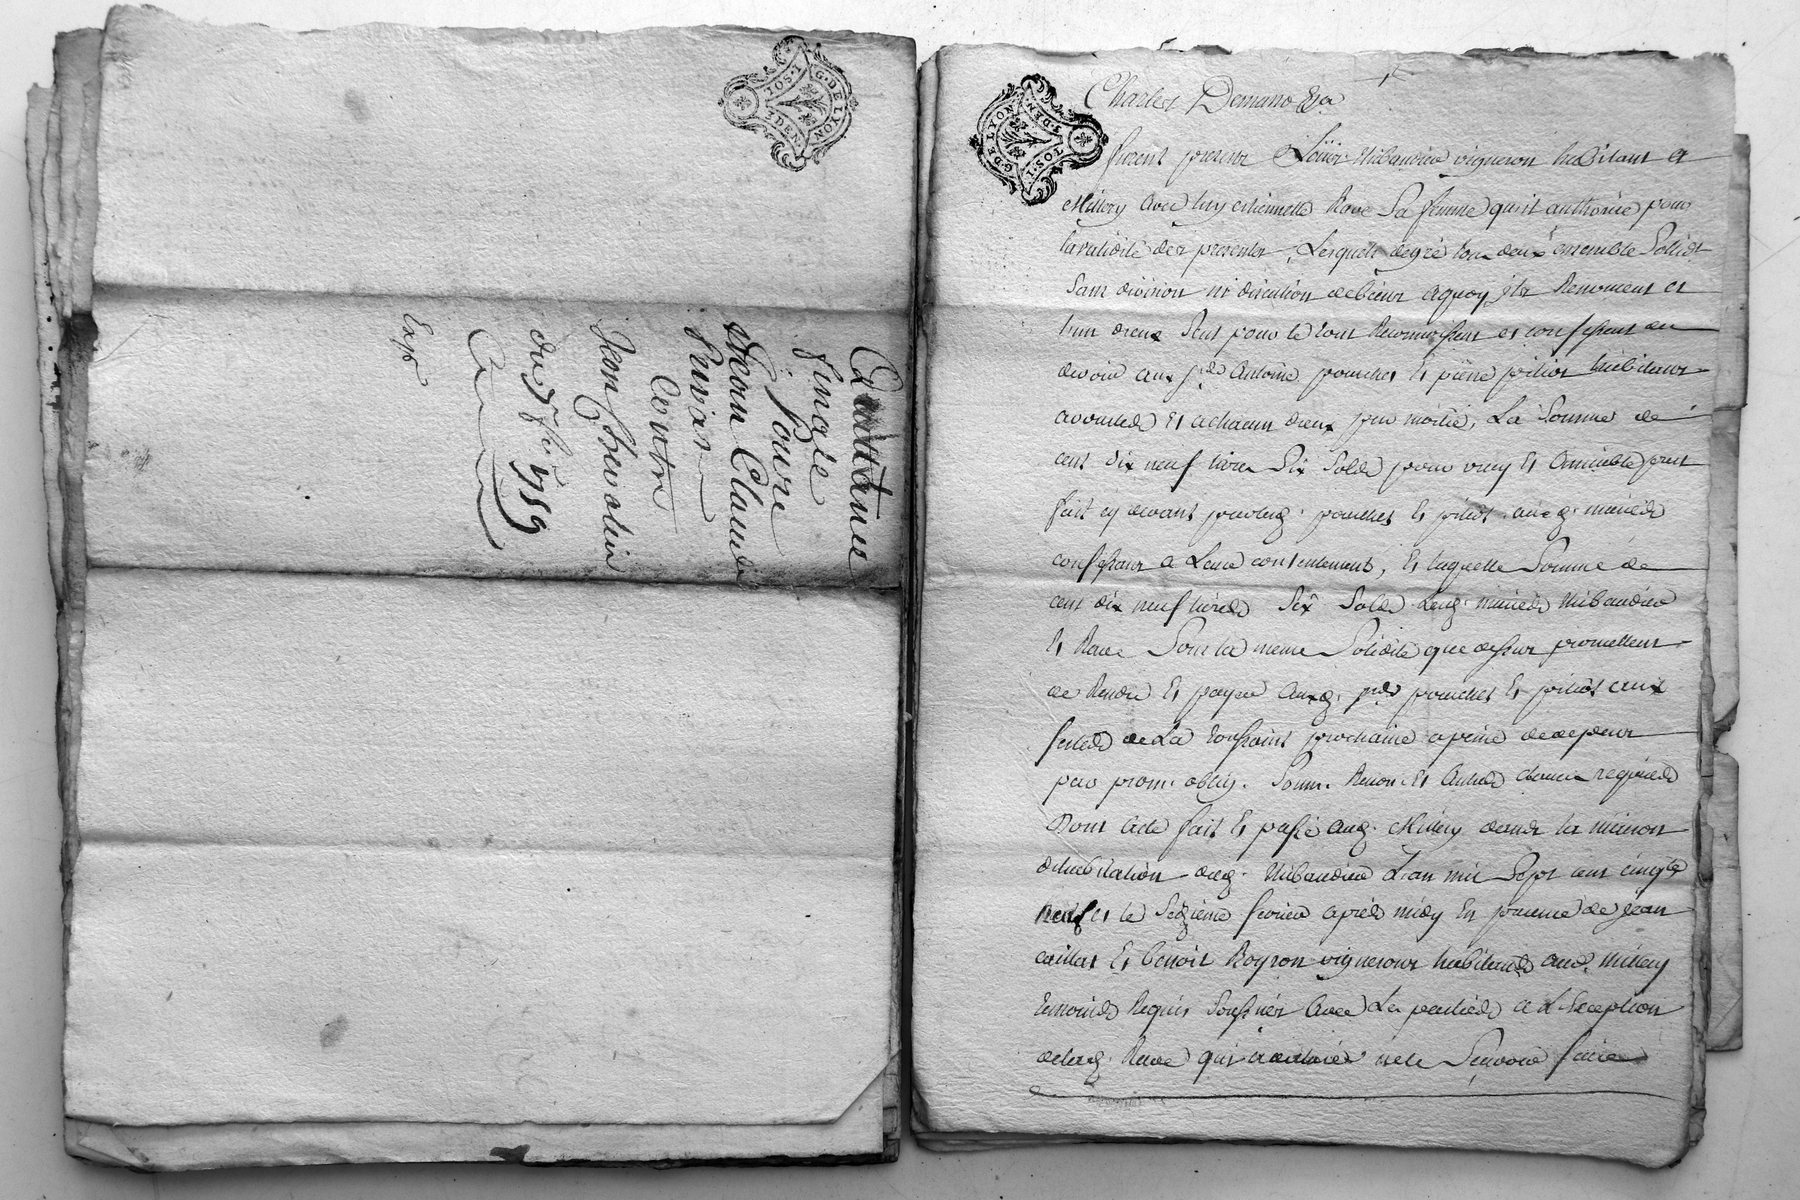 1.SOL
G.DE LYON
3.DEN.
Quittance
simple
Pour
Jean Claude
Privas
Contre
Jean Chevalier
du 7 fe. 1759
Exp
G.DE LYON
3.DEN.
1.SOL
Charles
furent present Loüis thibaudier vigneron habitant a
Millery avec luy etiennette Rave Sa femme qu'il authorise pour
la validité des presentes, Lesquels de gré tous deux ensemble Solid.t
Sans division ni discution de biens a quoy ils Renoncent et
l'un d'eux Seul pour le tout Reconnoissent et confessent
devoir aux Antoine pouchet et pierre pitiot habitants
et a chacun d'eux par moitié, La Somme de
cent dix neuf livres Six Sols pour vray et amiable prest
fait cy devant par lesd. pouchet et pitiot auxd. mariés
confessants a Leur contentement, Et laquelle Somme de
cent dix neuf livres Six Sols Lesd. mariés thibaudier
Et Rave Sous la meme Solidité que dessus promettent
de Rendre Et payer auxd. pouchet Et pitiot aux
festes de La toussaint prochaine a peine de depens
par prom. oblig. Soum. Renon. Et autres clauses requises
Dont acte fait Et passé aud. Millery dans la maison
d'habitation dud. thibaudier L'an mil Sept cent cinq.te
neuf et le Seizieme fevrier après midy En presence de jean
Et benoit vignerons habitants aud. millery
temoins Requis Soussignés avec Les parties a L'Exception
de lad. Rave qui a declaré ne le Scavoir faire